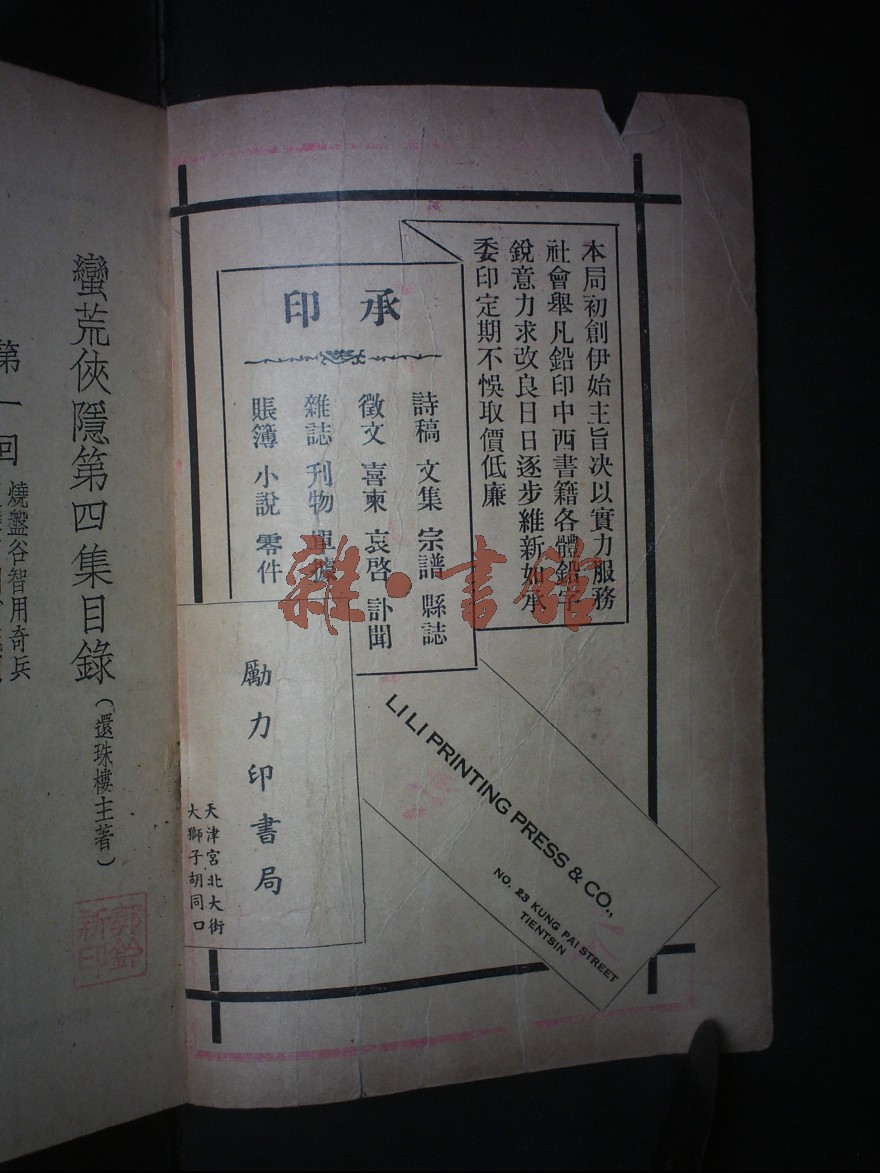 本局初創伊始主旨決以實力服務
社會舉凡鉛印中西書籍各體鉛字
銳意力求改良日日逐步維新如承
委印定期不悞取價低廉
承印
詩稿 文集 宗譜 縣誌
徵文 喜柬 哀啓 訃聞
雜誌 刊物 單據
賬簿 小說 零件
勵力印書局
天津宮北大街
大獅子胡同口
LI LI PRINTING PRESS & CO.,
NO. 23 KUNG PAI STREET
TIENTSIN
雜·書館
蠻荒俠隱第四集目錄(還珠樓主著)
第一回
燒盤谷智用奇兵